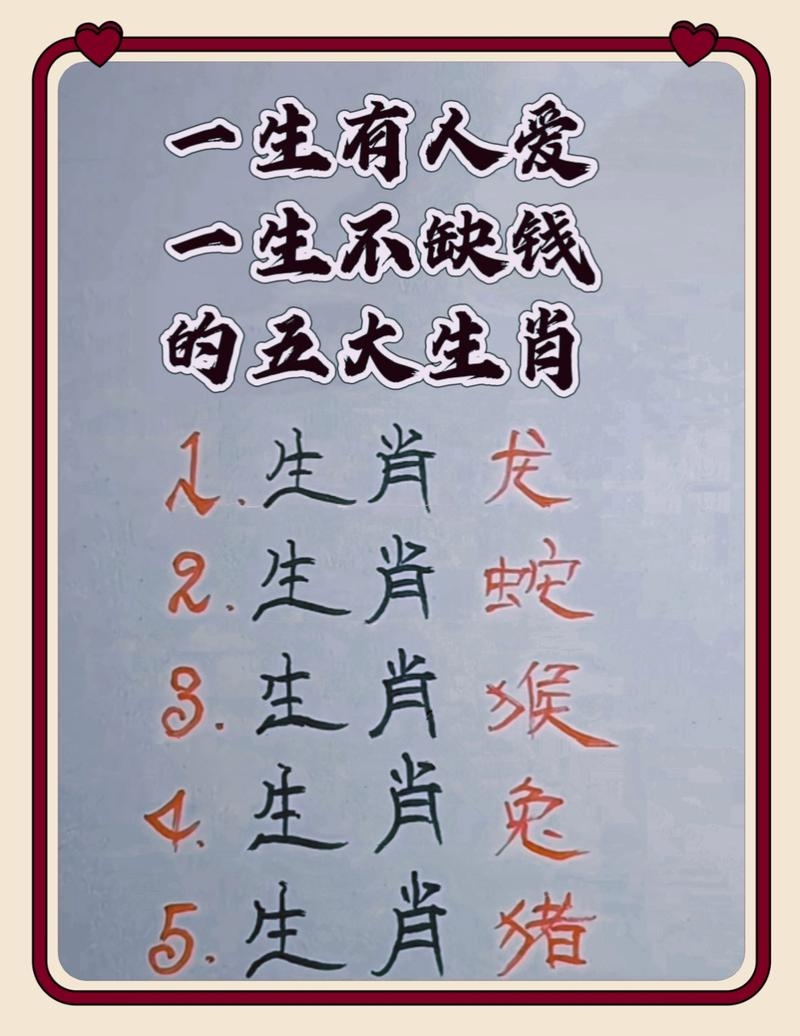 一生有人爱
一生不缺钱
的五大生肖
1.生肖龙
2.生肖蛇
3.生肖猴
4.生肖兔
5.生肖猪